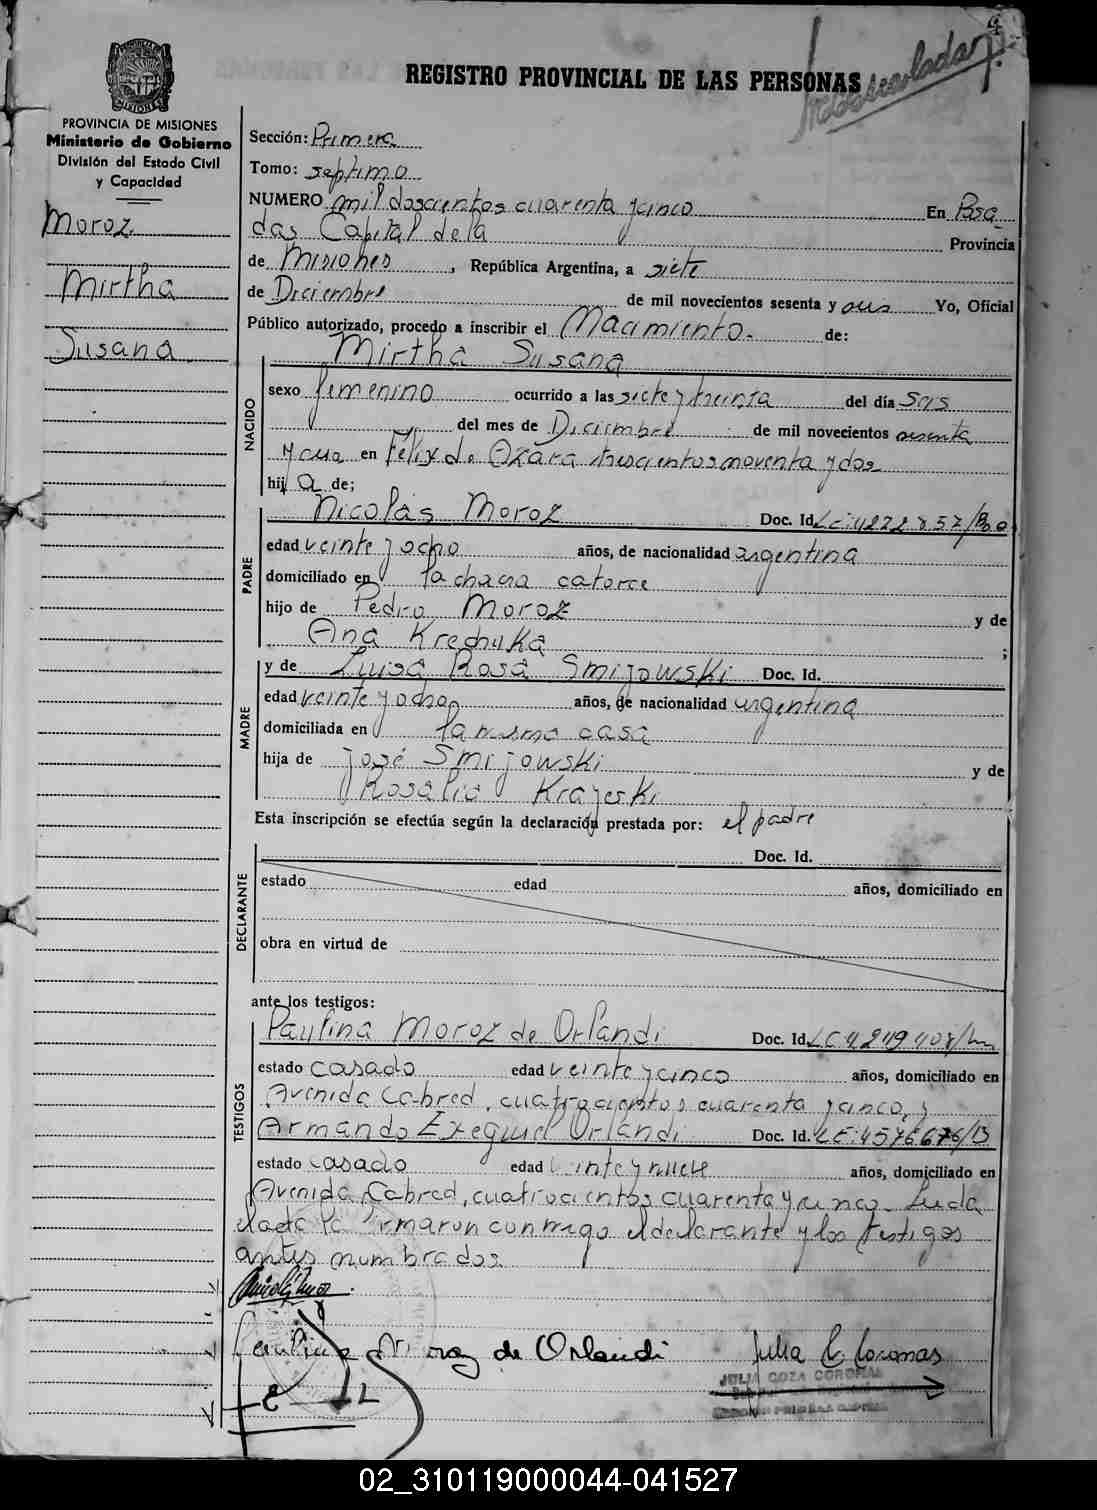 REGISTRO PROVINCIAL DE LAS PERSONAS
PROVINCIA DE MISIONES
Ministerio de Gobierno
División del Estado Civil
y Capacidad
Moroz
Mirtha
Susana
Sección: Primera
Tomo: septimo
NUMERO mil doscientos cuarenta y cinco En Posa
das Capital de la Provincia
de Misiones, República Argentina, a siete
de Diciembre de mil novecientos sesenta y uno Yo, Oficial
Público autorizado, procedo a inscribir el Nacimiento. de:
Mirtha Susana
NACIDO
sexo femenino ocurrido a las siete y treinta del día seis
del mes de Diciembre de mil novecientos sesenta
y uno en Félix de Azara trescientos noventa y dos
hij a de;
Nicolás Moroz Doc. Id.
PADRE
edad veinte y ocho años, de nacionalidad argentina
domiciliado en la chacra catorce
hijo de Pedro Moroz y de
Ana Krechuka ;
y de Luisa Rosa Smijowski Doc. Id.
MADRE
edad veinte y ocho años, de nacionalidad argentina
domiciliada en la misma casa
hija de José Smijowski y de
Rosalia Krajeski
Esta inscripción se efectúa según la declaración prestada por: el padre
Doc. Id.
DECLARANTE
estado edad años, domiciliado en
obra en virtud de
ante los testigos:
TESTIGOS
Paulina Moroz de Orlandi Doc. Id.
estado casado edad veinte y cinco años, domiciliado en
Avenida Cabred, cuatrocientos cuarenta y cinco, y
Armando Exequiel Orlandi Doc. Id. LE: 4576676/13
estado casado edad veinte y nueve años, domiciliado en
Avenida Cabred, cuatrocientos cuarenta y cinco. Leida
el acta la firmaron conmigo el declarante y los testigos
antes nombrados
Paulina Moroz de Orlandi
Julia C Coronas
JULIA COZA CORONAS
02_310119000044-041527